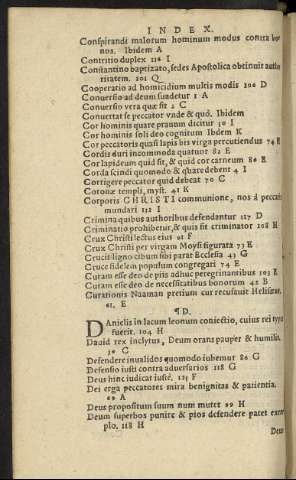 INDEX.
Conspirandi malorum hominum modus contra bo-
nos. Ibidem A
Contritio duplex 118 I
Constantino baptizato, sedes Apostolica obtinuit autho
ritatem. 201 Q
Cooperatio ad homicidium multis modis 100 D
Conuersio ad deum suadetur 1 A
Conuersio vera quæ sit 2 C
Conuertat se peccator vnde & quò. Ibidem
Cor hominis quare prauum dicitur 50 I
Cor hominis soli deo cognitum Ibdem K
Cor peccatoris quasi lapis bis virga percutiendus 74 E
Cordis duri incommoda quatuor 82 E
Cor lapideum quid sit, & quid cor carneum 80 E
Corda scindi quomodo & quare debent 4 I
Corrigere peccator quid debeat 70 C
Coronæ templi, myst. 41 K
Corporis CHRISTI communione, nos à peccatis
mundari 112 I
Crimina quibus authoribus defendantur 117 D
Criminatio prohibetur, & quis sit criminator 108 H
Crux Christi lectus eius 61 F
Crux Christi per virgam Moysi figurata 73 E
Crucis ligno cibum sibi parat Ecclesia 43 G
Cruce fidelem populum congregari 74 E
Curam esse deo de piis adhuc peregrinantibus 103 E
Curam esse deo de necessitatibus bonorum 42 B
Curationis Naaman pretium cur recusauit Helisæus,
61. E
¶D.
Danielis in lacum leonum coniectio, cuius rei typus
fuerit. 104 H
Dauid rex inclytus, Deum orans pauper & humilis.
30 G
Defendere inualidos quomodo iubemur 86 G
Defensio iusti contra aduersarios 118 G
Deus hinc iudicat iustè. 125 F
Dei erga peccatores mira benignitas & patientia.
69 A
Deus propositum suum num mutet 99 H
Deum superbos punire & pios defendere patet exem
plo. 118 H
Deus